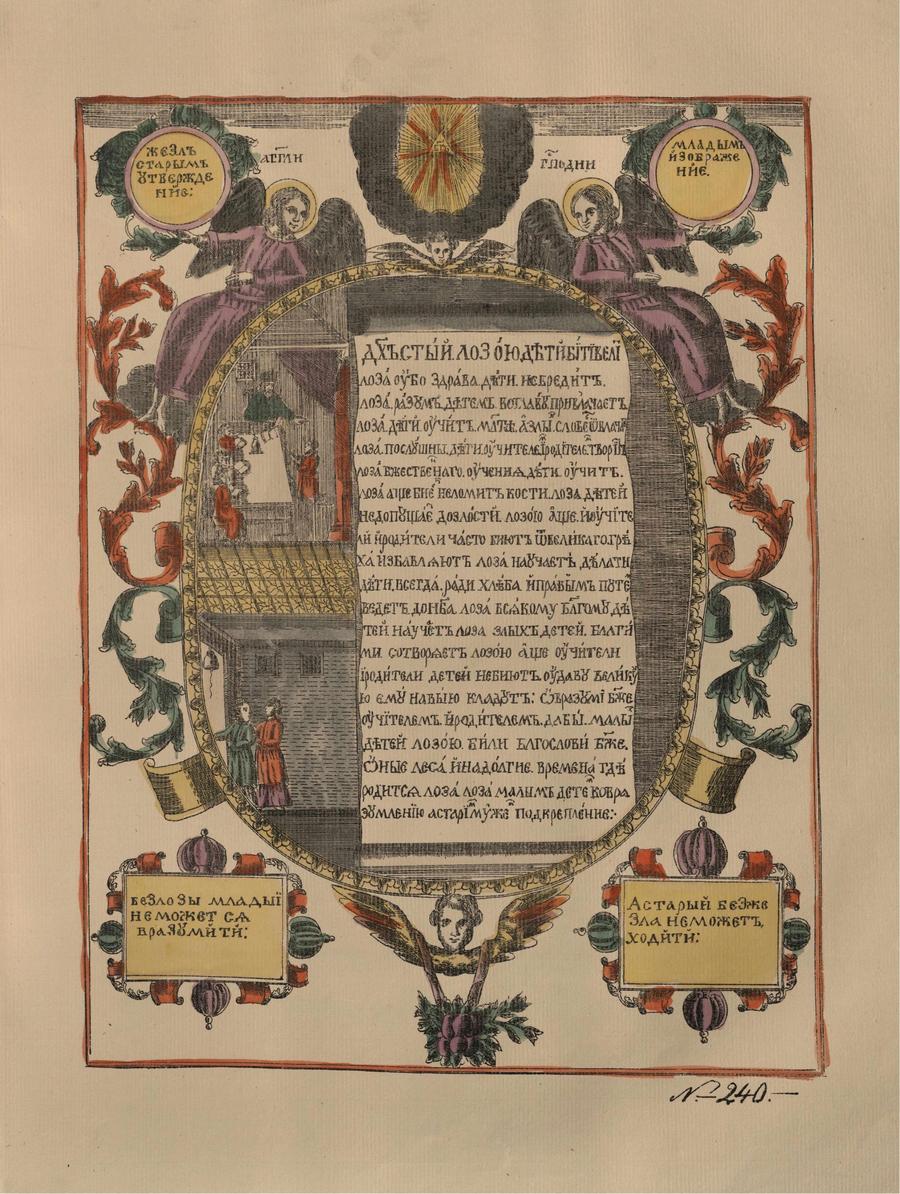 ЖЕЗЛЪ
СТАРЫМЪ
ꙊТВЕРЖДЕ
НИЕ:
АГГЛИ
ГПДНИ
МЛАДЫМЪ
ИЗОБРАЖЕ
НИЕ.
ДХЪ СТЫЙ ЛОЗОЮ ДѢТИ БИТИ ВЕЛІ
ЛОЗА ОУБО ЗДРАВА ДѢТИ НЕВРЕДИТЪ.
ЛОЗА РАЗУМЪ ДѢТЕМЪ ВОГЛАВУ ПРИВЛАЧАЕТЪ
ЛОЗА ДѢТИ ОУЧИТЪ МЛТВѢ АЗЛЫ
ЛОЗА ПОСЛУШНЫ ДѢТИ ОУЧИТЕЛЕ РОДИТЕЛЕ ТВОРИТ
ЛОЗА БЖЕСТВЕННАГО ОУЧЕНИѦ ДѢТИ ОУЧИТЪ.
ЛОЗА АЩЕ БИЕ НЕЛОМИТ КОСТИ ЛОЗА ДѢТЕЙ
НЕДОПУЩАЕ ДОЗЛОСТИ ЛОЗОЮ АЩЕ ИОУЧИТЕ
ЛИ ИРОДИТЕЛИ ЧАСТО БИЮТЪ ѾВЕЛИКАГО ГРѢ
ХА ИЗБАВЛѦЮТЪ ЛОЗА НАУЧАЕТЪ ДѢЛАТИ
ДѢТИ ВСЕГДА РАДИ ХЛѢБА ИПРАВЫМЪ ПУТЕ
ВЕДЕТЪ ДОНБА ЛОЗА ВСѦКОМУ БЛГОМУ ДѢ
ТЕЙ НАУЧЕТЪ ЛОЗА ЗЛЫХЪ ДЕТЕЙ БЛАГИ
МИ СОТВОРѦЕТЪ ЛОЗОЮ АЩЕ ОУЧИТЕЛИ
ІРОДИТЕЛИ ДЕТЕЙ НЕБИЮТЪ ОУДАВУ ВЕЛИКУ
Ю ЕМУ НАВЫЮ КЛАДУТЪ: ВРАЗУМІ БЖЕ
ОУЧІТЕЛЕМЪ ИРОДИТЕЛЕМЪ ДАБЫ МАЛЫ
ДѢТЕЙ ЛОЗОЮ БИЛИ БЛГОСЛОВИ БЖЕ.
ОНЫЕ ЛЕСА ИНАДОЛГИЕ ВРЕМЕНА ГДѢ
РОДИТСѦ ЛОЗА ЛОЗА МАЛЫМЪ ДЕТЕ КОВРА
ЗУМЛЕНІЮ АСТАРЫМ МУЖЕ ПОДКРЕПЛЕНИЕ:
БЕЗЛОЗЫ МЛАДЫІ
НЕМОЖЕТ СѦ
ВРАЗꙊМИТИ:
АСТАРЫЙ БЕЗЖЕ
ЗЛА НЕМОЖЕТЪ
ХОДИТИ:
№ 240.